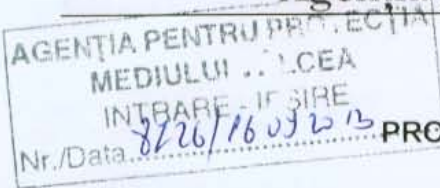 AGENȚIA PENTRU PR...ECȚIA
MEDIULUI ... LCEA
INTRARE - IEȘIRE
Nr./Data 8226/16 09 2013 PRO